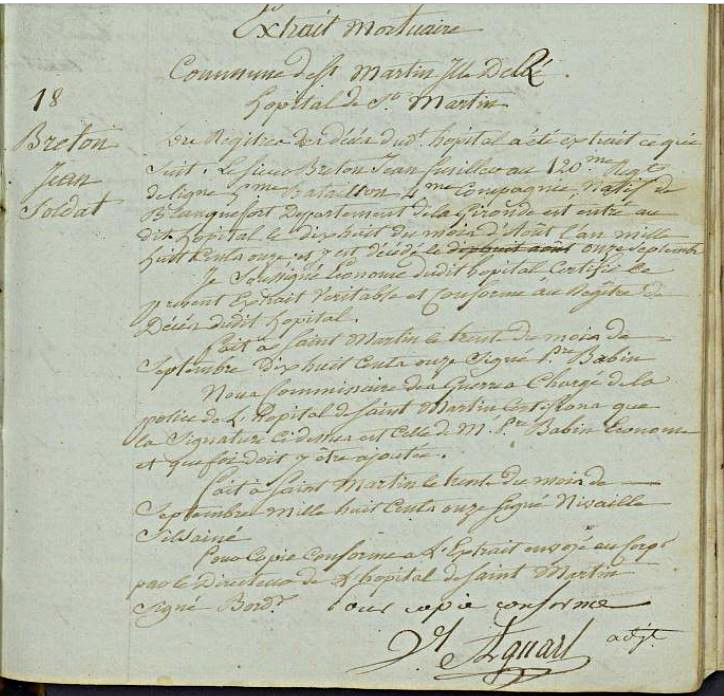 Extrait Mortuaire
Commune de St Martin Ile De Ré.
hopital de St Martin
18
Breton
Jean
Soldat
Des Regitres des décès dudt. hopital a été extrait ce qui
Suit. Le sieur Breton Jean fusillier au 120.me Regt
de ligne 5me Bataillon 4me Compagnie, Natif de
Blanquefort Departement de la Gironde est entré au
dit hopital le dix huit du mois d'Aout l'an mille
huit Cents onze et y est décédé le dix huit août onze Septembre
Je Soussigné Econome dudit hopital Certifie le
present Extrait Veritable et Conforme au Regitre de
Décès dudit hopital.
fait à Saint Martin le trente du mois de
Septembre Dix huit Cents onze Signé Pre Babin
Nous Commissaire des Guerres Chargé de la
police de L'hopital de Saint Martin Certifions que
la Signature Ci dessus est Celle de M. Pre Babin Econome
et que foi doit y être ajoutée.
fait à Saint Martin le trente du mois de
Septembre mille huit Cents onze Signé Nivaille
fils ainé
Pour Copie Conforme a L'Extrait envoyé au Corps
par le Directeur de L'hopital de Saint Martin
Signé Bordr. Pour copie conforme
adjt